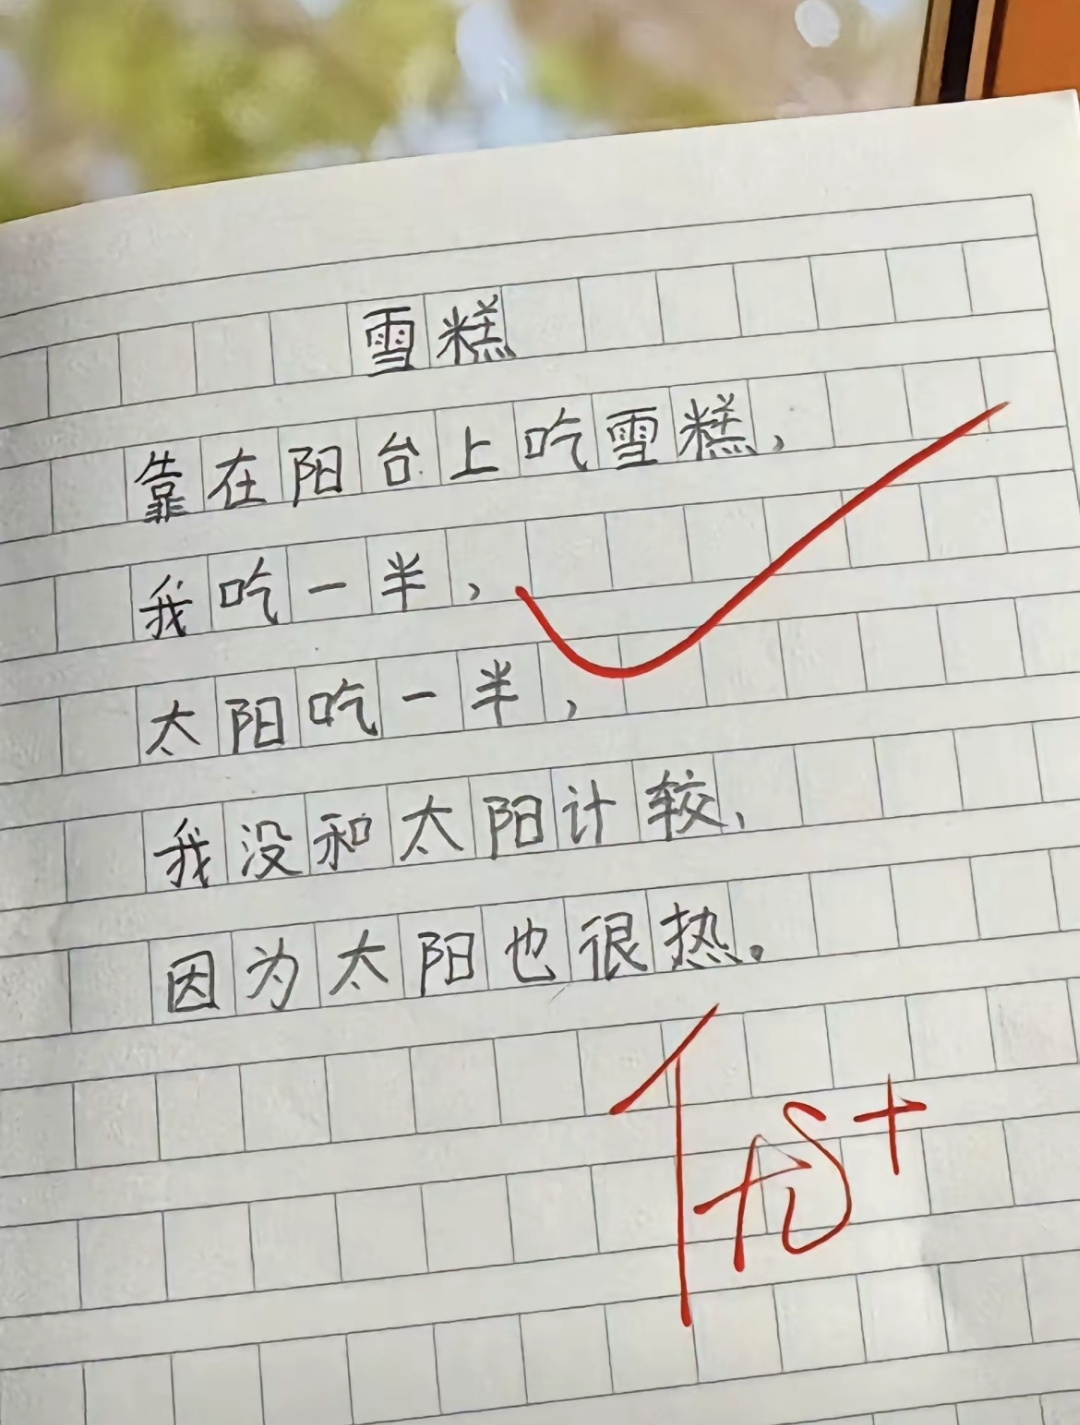 雪糕
靠在阳台上吃雪糕，
我吃一半，
太阳吃一半，
我没和太阳计较，
因为太阳也很热。
优+